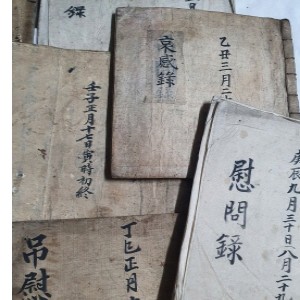 錄
哀感錄
乙丑三月二十
壬子五月十七日寅時初終
慰問錄
庚辰九月三十日八月二十
丁巳正月
吊慰